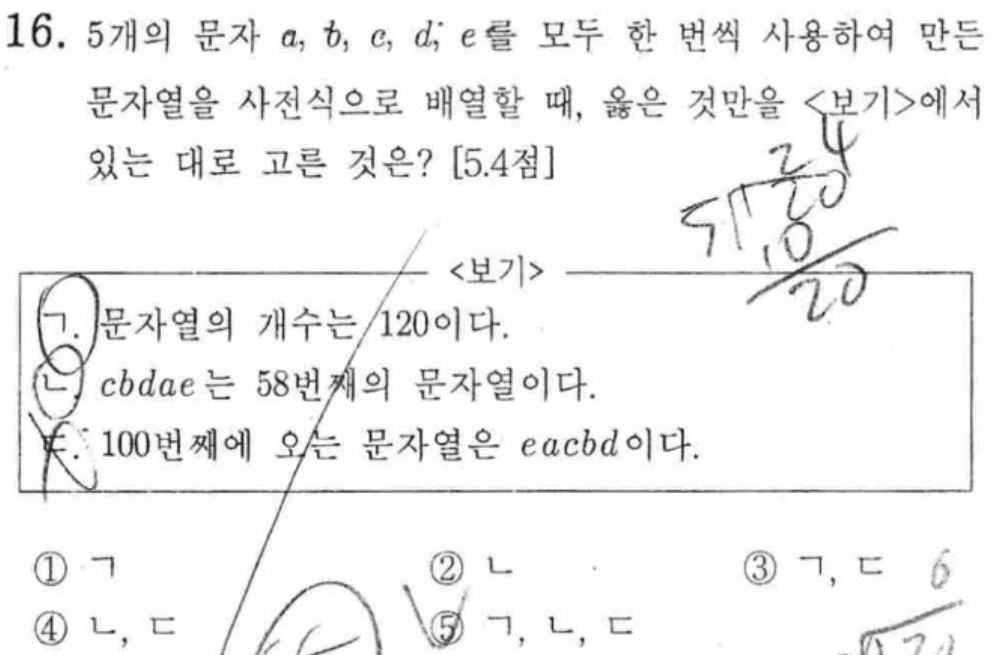 16. 5개의 문자 a, b, c, d, e를 모두 한 번씩 사용하여 만든
문자열을 사전식으로 배열할 때, 옳은 것만을 <보기>에서
있는 대로 고른 것은? [5.4점]
24
5 120
10
20
<보기>
ㄱ. 문자열의 개수는 120이다.
ㄴ. cbdae는 58번째의 문자열이다.
ㄷ. 100번째에 오는 문자열은 eacbd이다.
① ㄱ ② ㄴ ③ ㄱ, ㄷ
6
④ ㄴ, ㄷ ⑤ ㄱ, ㄴ, ㄷ